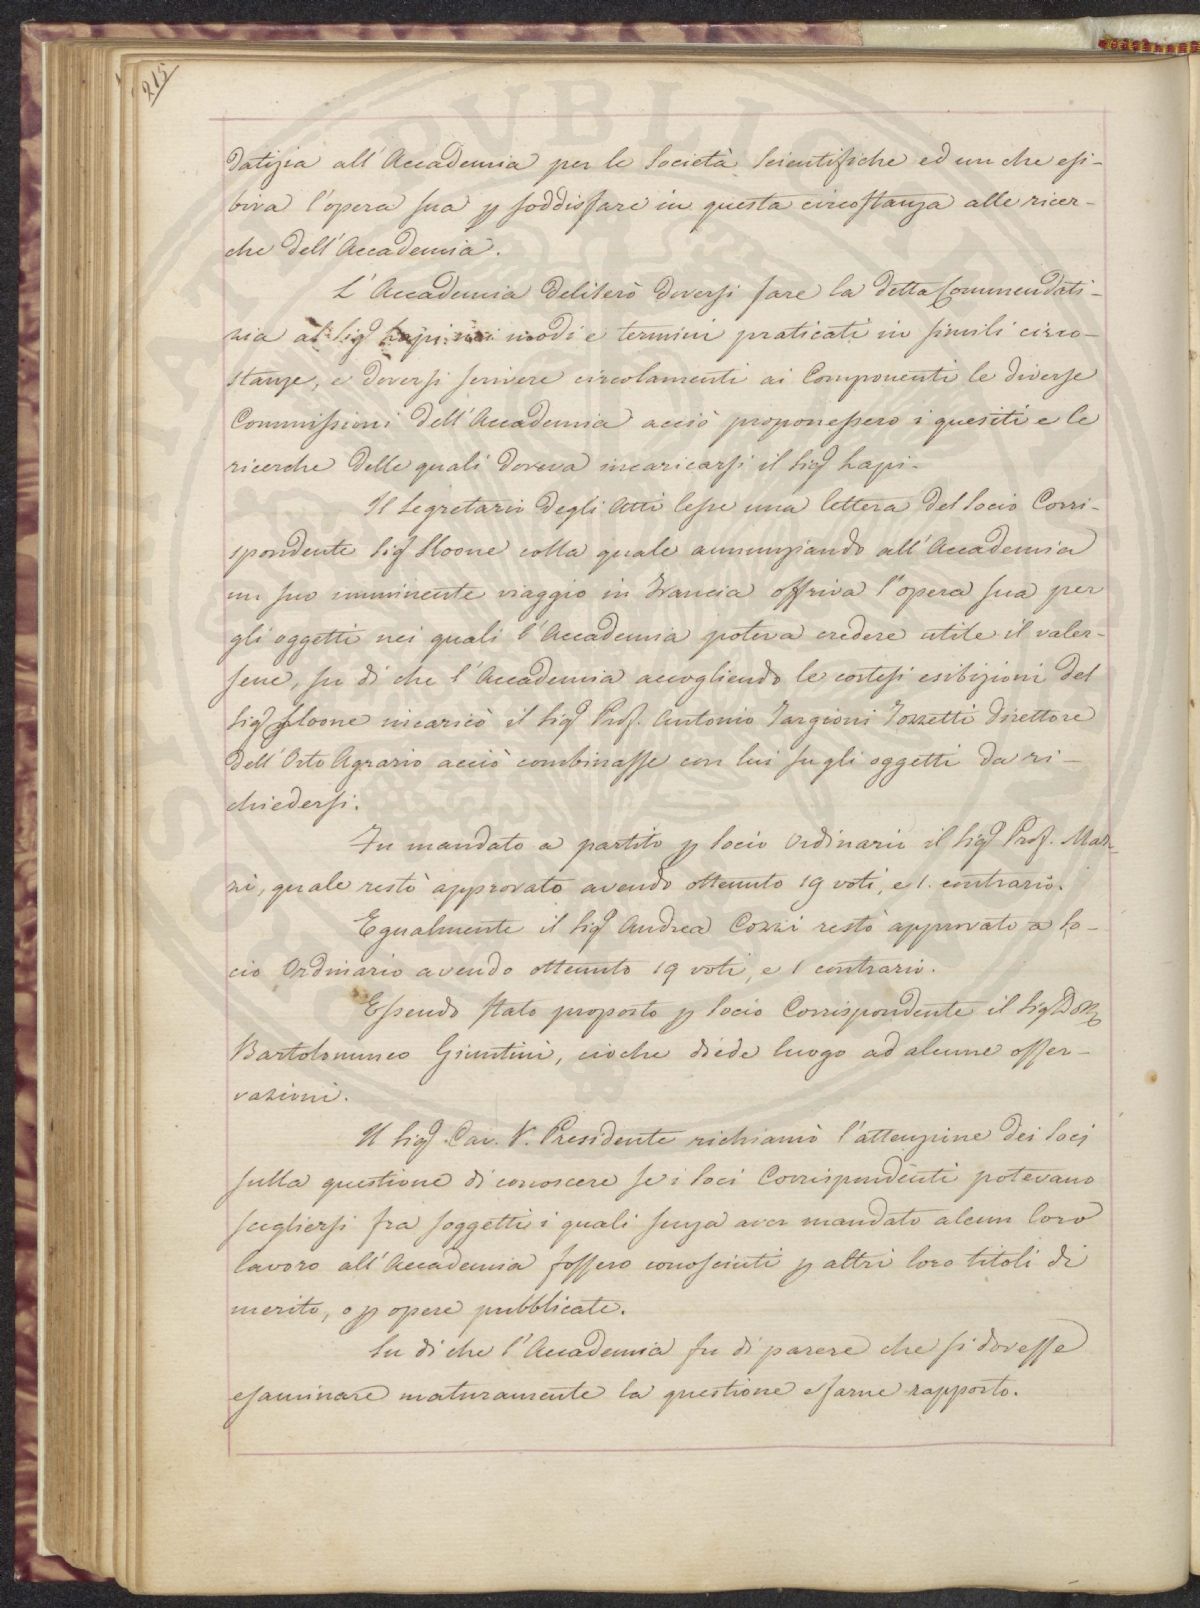 215
datizia all'Accademia per le Società Scientifiche ed un che esi-
biva l'opera sua p soddisfare in questa circostanza alle ricer-
che dell'Accademia.
L'Accademia deliberò doversi fare la detta Commendati-
zia al Sig Lapi nei modi e termini praticati in simili circo-
stanze, e doversi scrivere circolarmenti ai Componenti le diverse
Commissioni dell'Accademia acciò proponessero i quesiti e le
ricerche delle quali doveva incaricarsi il Sig Lapi.
Il Segretario degli Atti lesse una lettera del Socio Corri-
spondente Sig Sloone colla quale annunziando all'Accademia
un suo imminente viaggio in Francia offriva l'opera sua per
gli oggetti nei quali l'Accademia poteva credere utile il valer-
sene, su di che l'Accademia accogliendo le cortesi esibizioni del
Sig Sloone incaricò il Sig Prof. Antonio Targioni Tozzetti Direttore
dell'Orto Agrario acciò combinasse con lui sugli oggetti da ri-
chiedersi.
Fu mandato a partito p Socio Ordinario il Sig Prof. Maz-
zi, quale restò approvato avendo ottenuto 19 voti, e 1. contrario.
Egualmente il Sig Andrea Cozzi restò approvato a So-
cio Ordinario avendo ottenuto 19 voti, e 1 contrario.
Essendo stato proposto p Socio Corrispondente il Sig Dott
Bartolommeo Giuntini, cioche diede luogo ad alcune osser-
vazioni.
Il Sig. Cav. V. Presidente richiamò l'attenzione dei Socj
sulla questione di conoscere se i Soci Corrispondenti potevano
scegliersi fra soggetti i quali senza aver mandato alcun loro
lavoro all'Accademia fossero conosciuti p altri loro titoli di
merito, o p opere pubblicate.
Su di che l'Accademia fu di parere che si dovesse
esaminare maturamente la questione e farne rapporto.